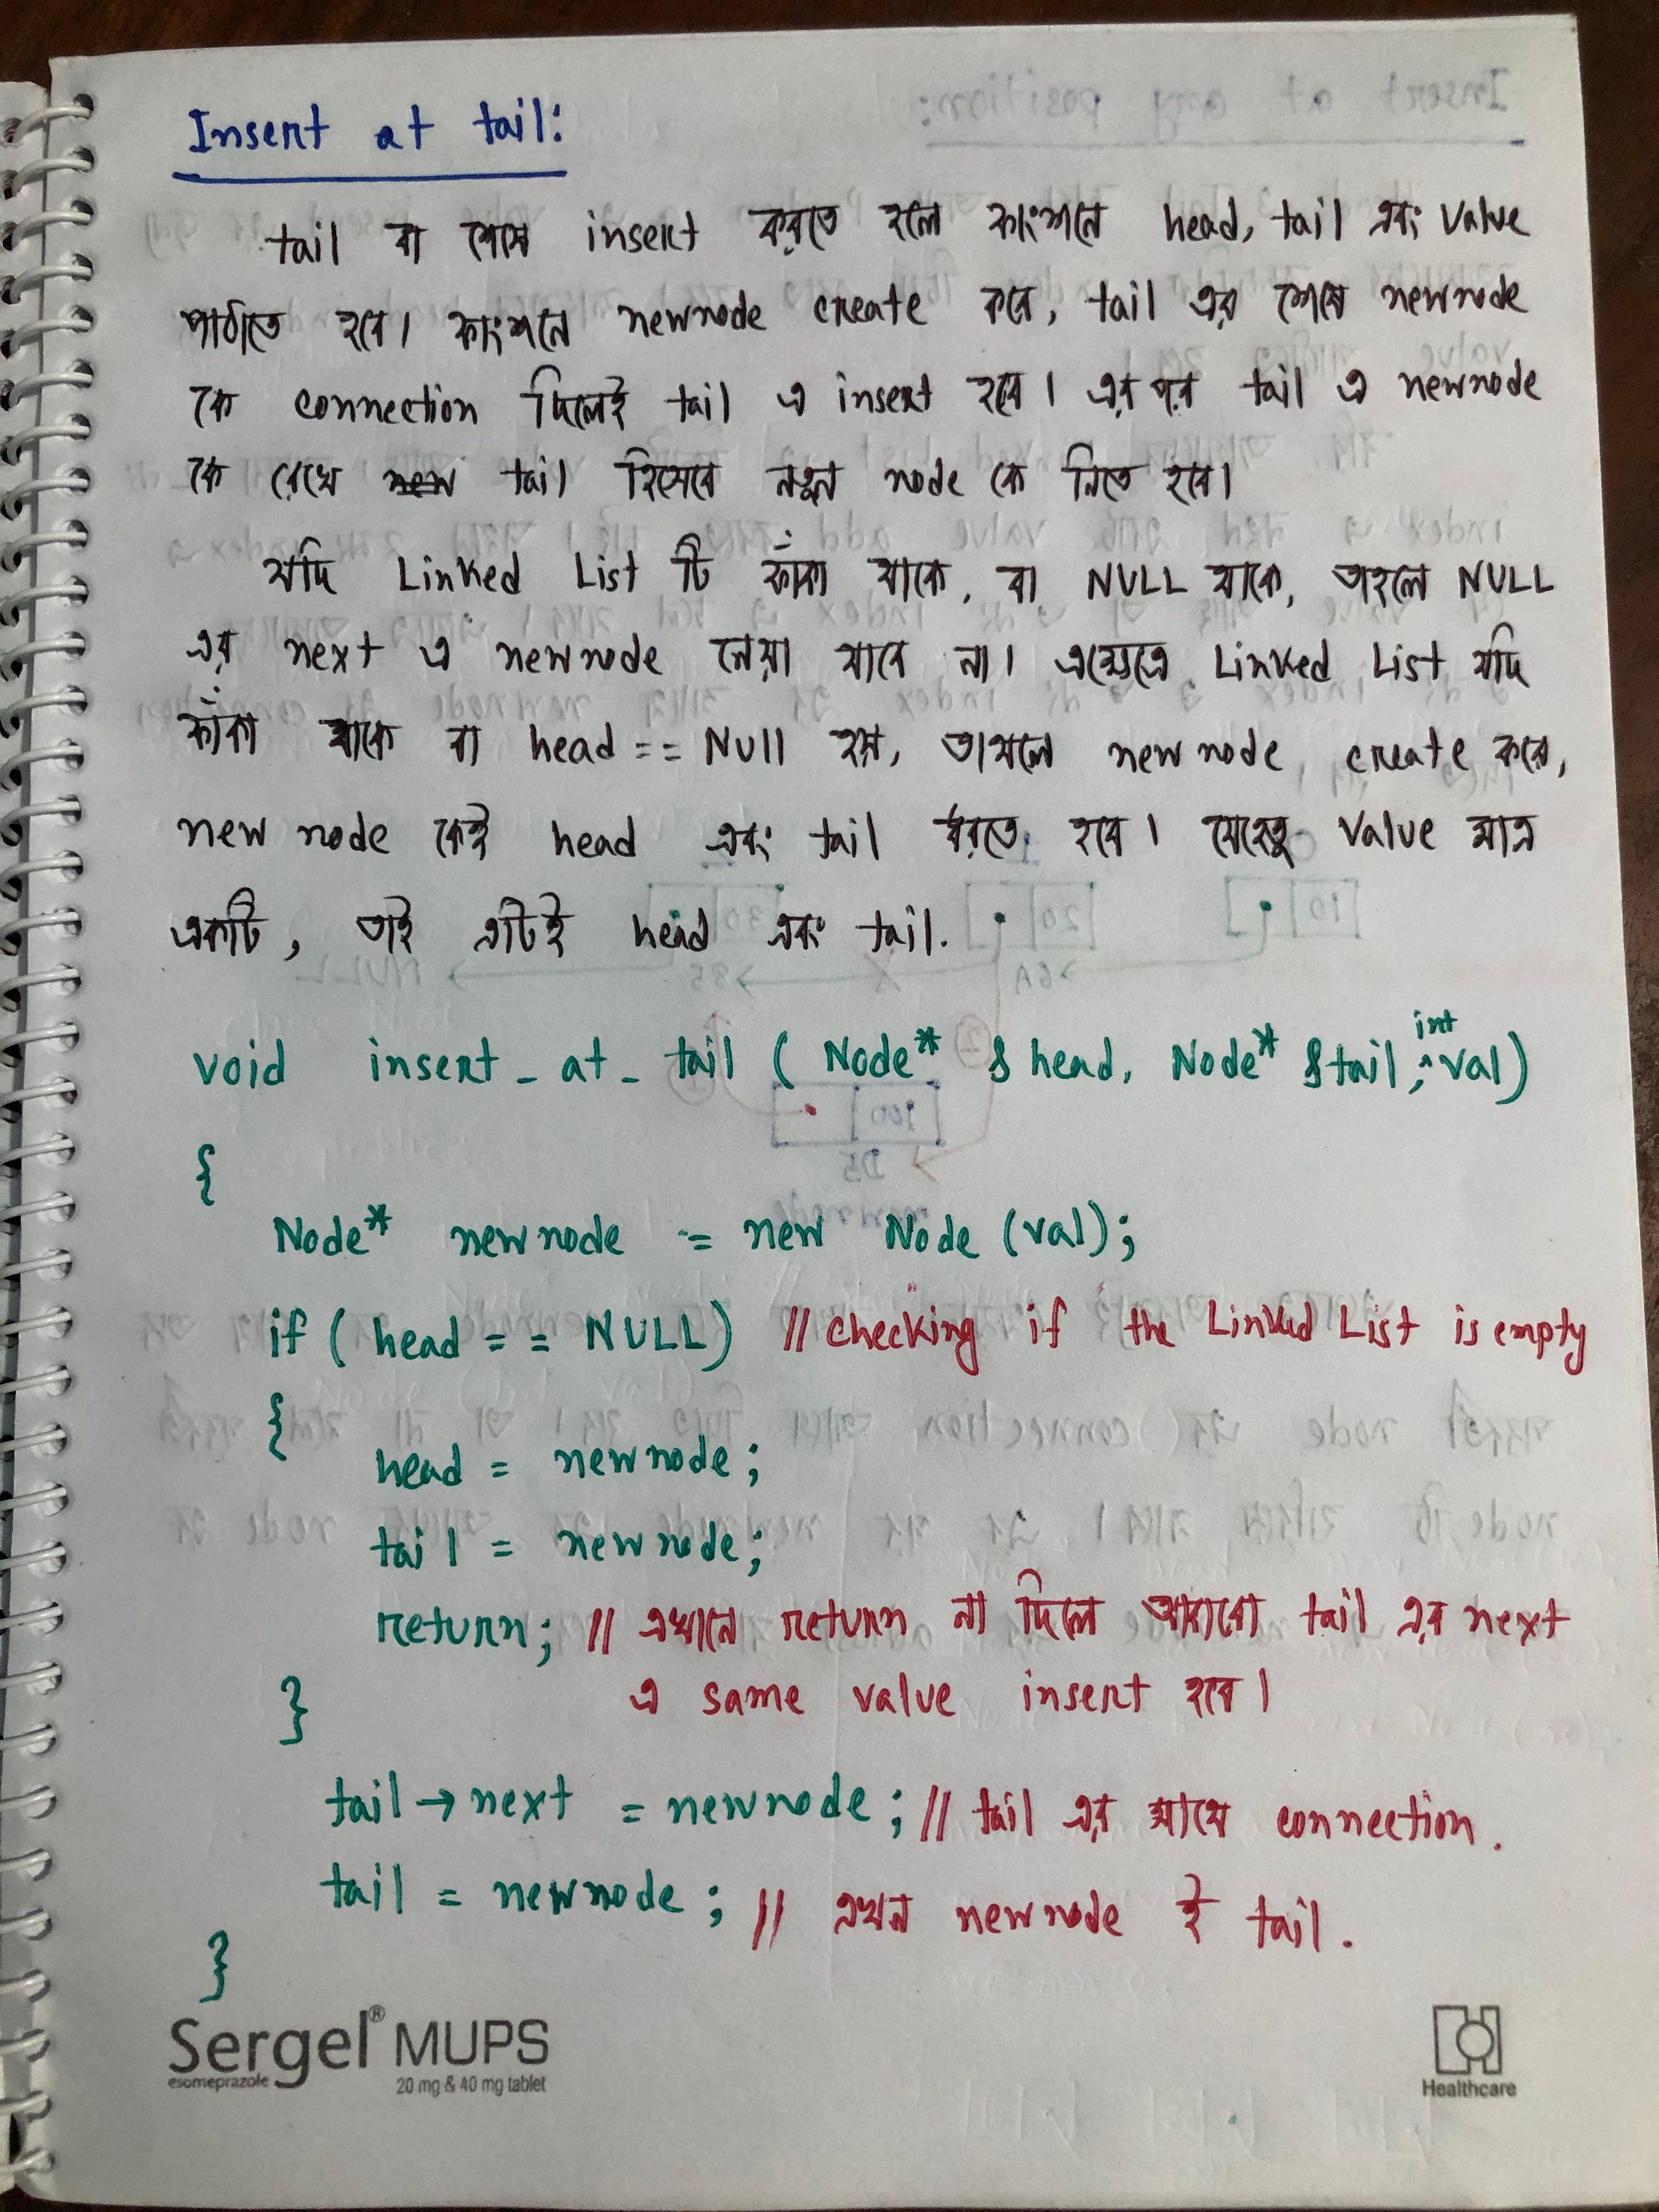 Insert at tail:
tail বা শেষে insert করতে হলে ফাংশনে head, tail এবং value
পাঠাতে হবে। ফাংশনে newnode create করে, tail এর শেষে newnode
কে connection দিলেই tail এ insert হবে। এর পর tail এ newnode
কে রেখে new tail হিসেবে নতুন node কে নিতে হবে।
যদি Linked List টি ফাঁকা থাকে, বা NULL থাকে, তাহলে NULL
এর next এ newnode নেয়া যাবে না। এক্ষেত্রে Linked List যদি
ফাঁকা থাকে বা head == Null হয়, তাহলে newnode create করে,
new node কেই head এবং tail ধরতে হবে। যেহেতু value মাত্র
একটি, তাই এটিই head এবং tail.
void insert_at_tail (Node* &head, Node* &tail, int val)
{
Node* newnode = new Node (val);
if (head == NULL) // checking if the Linked List is empty
{
head = newnode;
tail = newnode;
return; // এখানে return না দিলে আবারো tail এর next
এ same value insert হবে।
}
tail → next = newnode; // tail এর সাথে connection.
tail = newnode; // এখন newnode ই tail.
}
Sergel® MUPS
esomeprazole 20 mg & 40 mg tablet
Healthcare